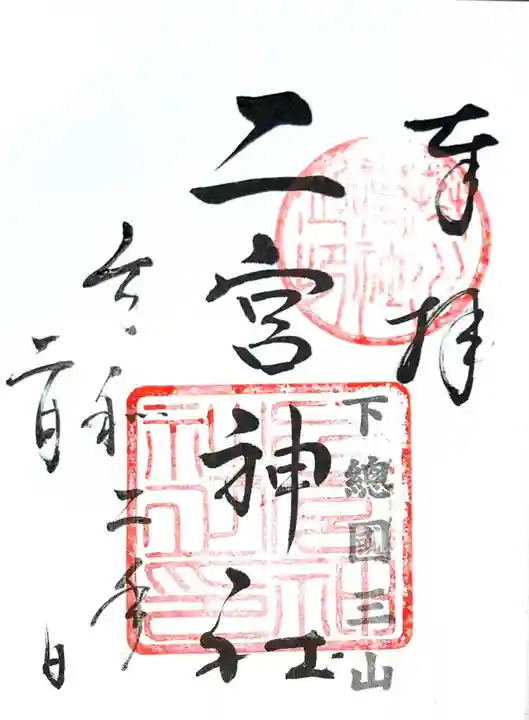 奉拝
下總國三山
二宮神社
令和二年
二月 日